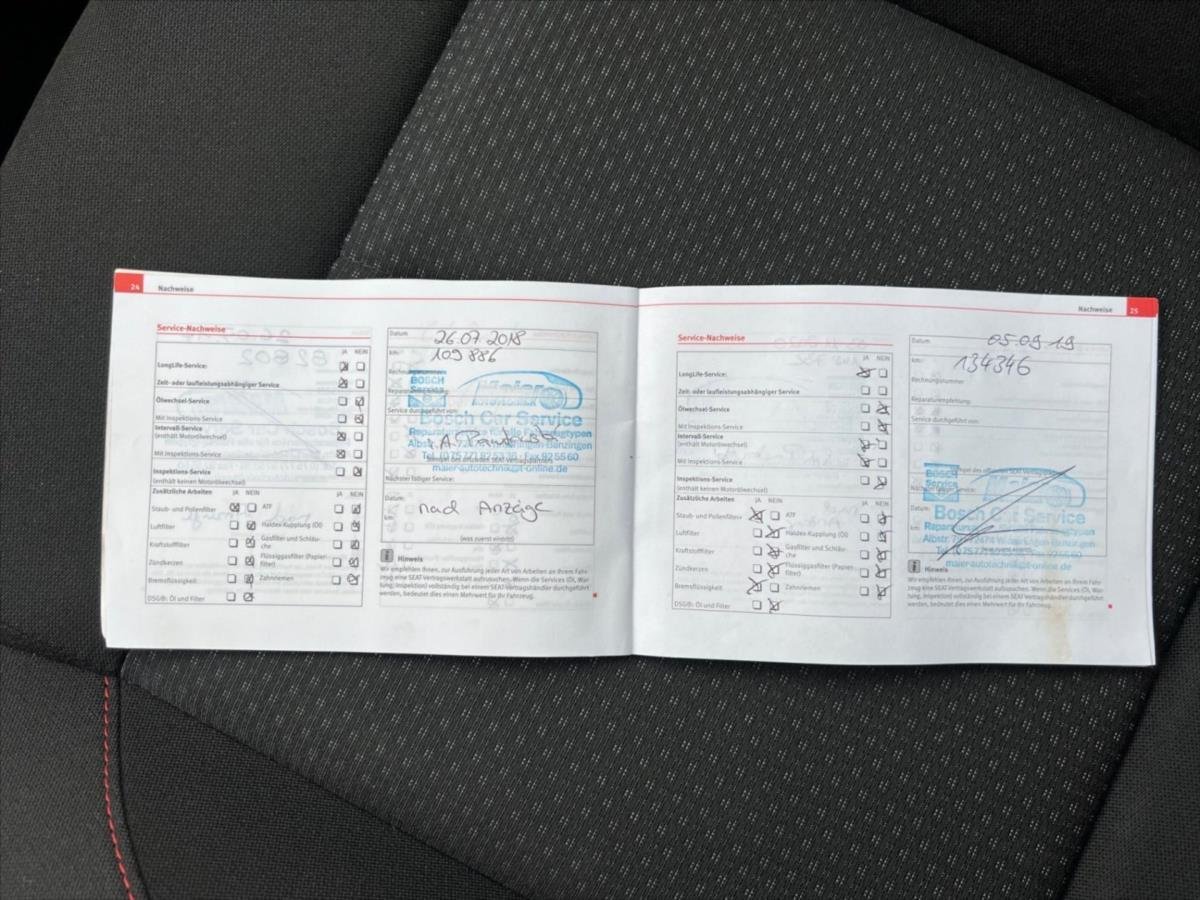 24 Nachweise
Service-Nachweise
JA NEIN
LongLife-Service:
Zeit- oder laufleistungsabhängiger Service
Ölwechsel-Service
Mit Inspektions-Service
Intervall-Service
(enthält Motorölwechsel)
Mit Inspektions-Service
Inspektions-Service
(enthält keinen Motorölwechsel)
Zusätzliche Arbeiten JA NEIN JA NEIN
Staub- und Pollenfilter
ATF
Luftfilter
Haldex-Kupplung (Öl)
Kraftstofffilter
Gasfilter und Schläu-
che
Zündkerzen
Flüssiggasfilter (Papier-
filter)
Bremsflüssigkeit
Zahnriemen
DSG®: Öl und Filter
Datum: 26.07.2018
km: 109 886
BOSCH
Service
Maier
Autotechnik
Service durchgeführt von:
Bosch Car Service
Reparaturen für alle Fahrzeugtypen
maier-autotechnik@t-online.de
Nächster fälliger Service:
Datum:
nach Anzeige
km:
(was zuerst eintritt)
Hinweis
Wir empfehlen Ihnen, zur Ausführung jeder Art von Arbeiten an Ihrem Fahr-
zeug eine SEAT-Vertragswerkstatt aufzusuchen. Wenn die Services (Öl, War-
tung, Inspektion) vollständig bei einem SEAT-Vertragshändler durchgeführt
werden, bedeutet dies einen Mehrwert für Ihr Fahrzeug.
Nachweise 25
Service-Nachweise
JA NEIN
LongLife-Service:
Zeit- oder laufleistungsabhängiger Service
Ölwechsel-Service
Mit Inspektions-Service
Intervall-Service
(enthält Motorölwechsel)
Mit Inspektions-Service
Inspektions-Service
(enthält keinen Motorölwechsel)
Zusätzliche Arbeiten JA NEIN JA NEIN
Staub- und Pollenfilter
ATF
Luftfilter
Haldex-Kupplung (Öl)
Kraftstofffilter
Gasfilter und Schläu-
che
Zündkerzen
Flüssiggasfilter (Papier-
filter)
Bremsflüssigkeit
Zahnriemen
DSG®: Öl und Filter
Datum: 05.09.19
km: 134346
Rechnungsnummer
Reparaturempfehlung:
Service durchgeführt von:
BOSCH
Service
Maier
Datum:
Bosch Car Service
km:
maier-autotechnik@t-online.de
Hinweis
Wir empfehlen Ihnen, zur Ausführung jeder Art von Arbeiten an Ihrem Fahr-
zeug eine SEAT-Vertragswerkstatt aufzusuchen. Wenn die Services (Öl, War-
tung, Inspektion) vollständig bei einem SEAT-Vertragshändler durchgeführt
werden, bedeutet dies einen Mehrwert für Ihr Fahrzeug.